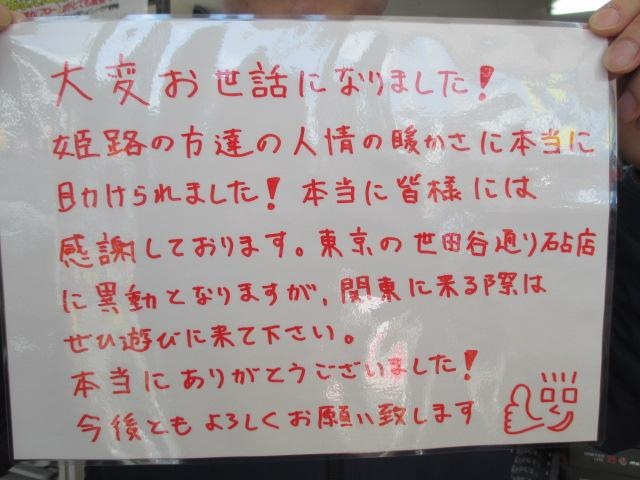 大変お世話になりました!
姫路の方達の人情の暖かさに本当に
助けられました!本当に皆様には
感謝しております。東京の世田谷通り砧店
に異動となりますが,関東に来る際は
ぜひ遊びに来て下さい。
本当にありがとうございました!
今後ともよろしくお願い致します